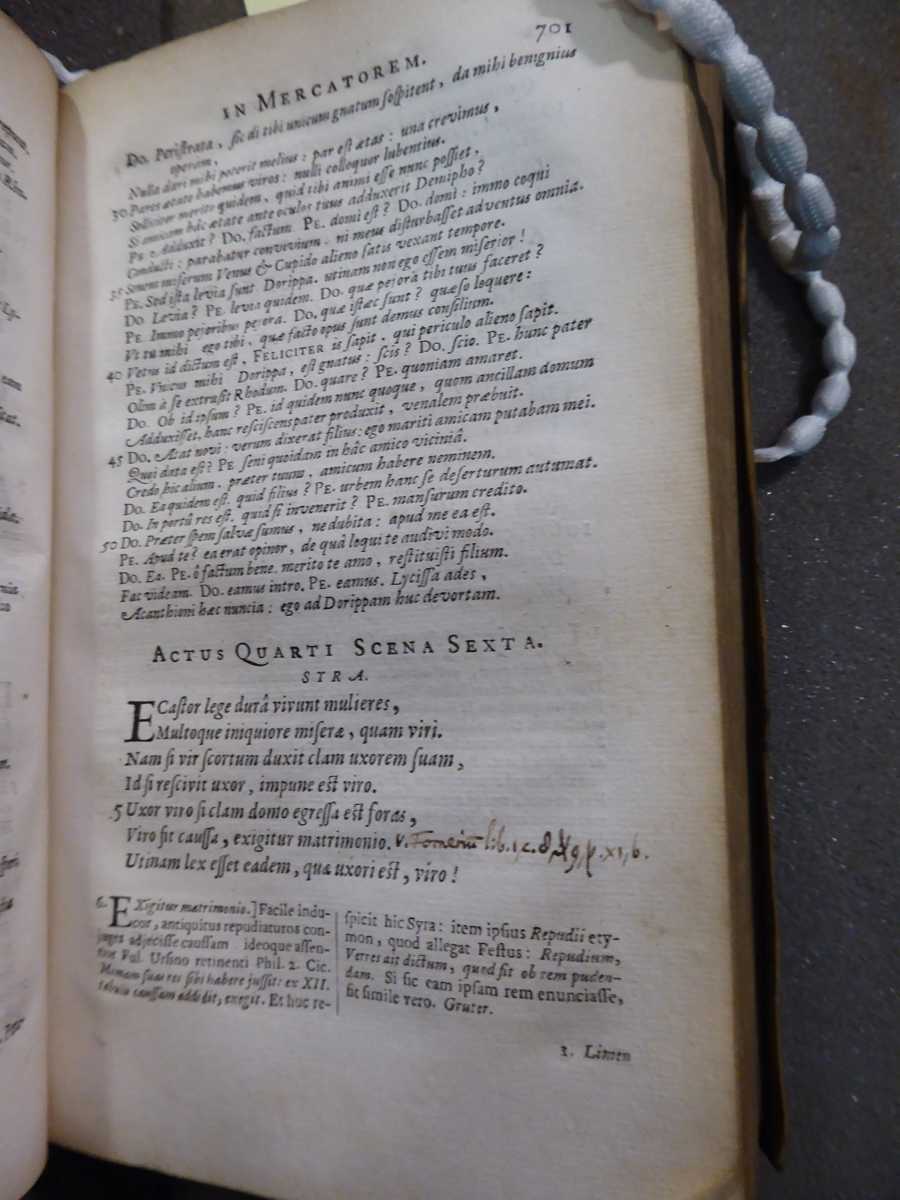 IN MERCATOREM. 701
Do. Peristrata, sic di tibi unicum gnatum sospitent, da mihi benignius
operam,
Nulla dari mihi poterit melius: par est ætas: una crevimus,
30 Pares ætate habemus viros: nulli colloquor lubentius.
Sollicitor merito quidem, quid tibi animi esse nunc possiet,
Si amicam hâc ætate ante oculos tuus adduxerit Demipho?
Pe Adduxit? Do. factum. Pe. domi est? Do. domi: immo coqui
Conducti: parabatur convivium, ni meus disturbasset adventus omnia.
35 Senem miserum Venus & Cupido alieno satis vexant tempore.
Pe. Sed ista levia sunt Dorippa. utinam non ego essem miserior!
Do. Levia? Pe. levia quidem. Do. quæ pejora tibi tuus faceret?
Pe. Immo pejoribus pejora. Do. quæ istæc sunt? quæso loquere:
Ut tu mihi ego tibi, quæ facto opus sunt demus consilium.
40 Vetus id dictum est, FELICITER is sapit, qui periculo alieno sapit.
Pe. Unicus mihi Dorippa, est gnatus: scis? Do. scio. Pe. hunc pater
Olim à se extrusit Rhodum. Do. quare? Pe. quoniam amaret.
Do. Ob id ipsum? Pe. id quidem nunc quoque, quom ancillam domum
Adduxisset, hanc resciscens pater produxit, venalem præbuit.
45 Do. Atat novi: verum dixerat filius: ego mariti amicam putabam mei.
Quoi data est? Pe seni quoidam in hâc amico viciniâ.
Credo hic alium, præter tuum, amicum habere neminem.
Do. Ea quidem est. quid filius? Pe. urbem hanc se deserturum autumat.
Do. In portû res est. quid si invenerit? Pe. mansurum credito.
50 Do. Præter spem salvæ sumus, ne dubita: apud me ea est.
Pe. Apud te? ea erat opinor, de quâ loqui te audivi modo.
Do. Ea. Pe. ô factum bene. merito te amo, restituisti filium.
Fac videam. Do. eamus intro. Pe. eamus. Lycissa ades,
Acanthioni hæc nuncia: ego ad Dorippam huc devortam.
ACTUS QUARTI SCENA SEXTA.
STRA.
ECastor lege durâ vivunt mulieres,
Multoque iniquiore miseræ, quam viri.
Nam si vir scortum duxit clam uxorem suam,
Id si rescivit uxor, impune est viro.
5 Uxor viro si clam domo egressa est foras,
Viro fit caussa, exigitur matrimonio. v. Fornerium lib. 1, c.
Utinam lex esset eadem, quæ uxori est, viro!
6. EXigitur matrimonio.] Facile indu-
cor, antiquitus repudiaturos con-
juges adjecisse caussam ideoque assen-
Ful. Ursino retinenti Phil. 2. Cic.
Mimam suas res sibi habere jussit: ex XII.
tabulis caussam addidit, exegit. Et huc re-
spicit hic Syra: item ipsius Repudii ety-
mon, quod allegat Festus: Repudium,
Verres ait dictum, quod fit ob rem puden-
dam. Si sic eam ipsam rem enunciasse,
fit simile vero. Gruter.
3. Limen